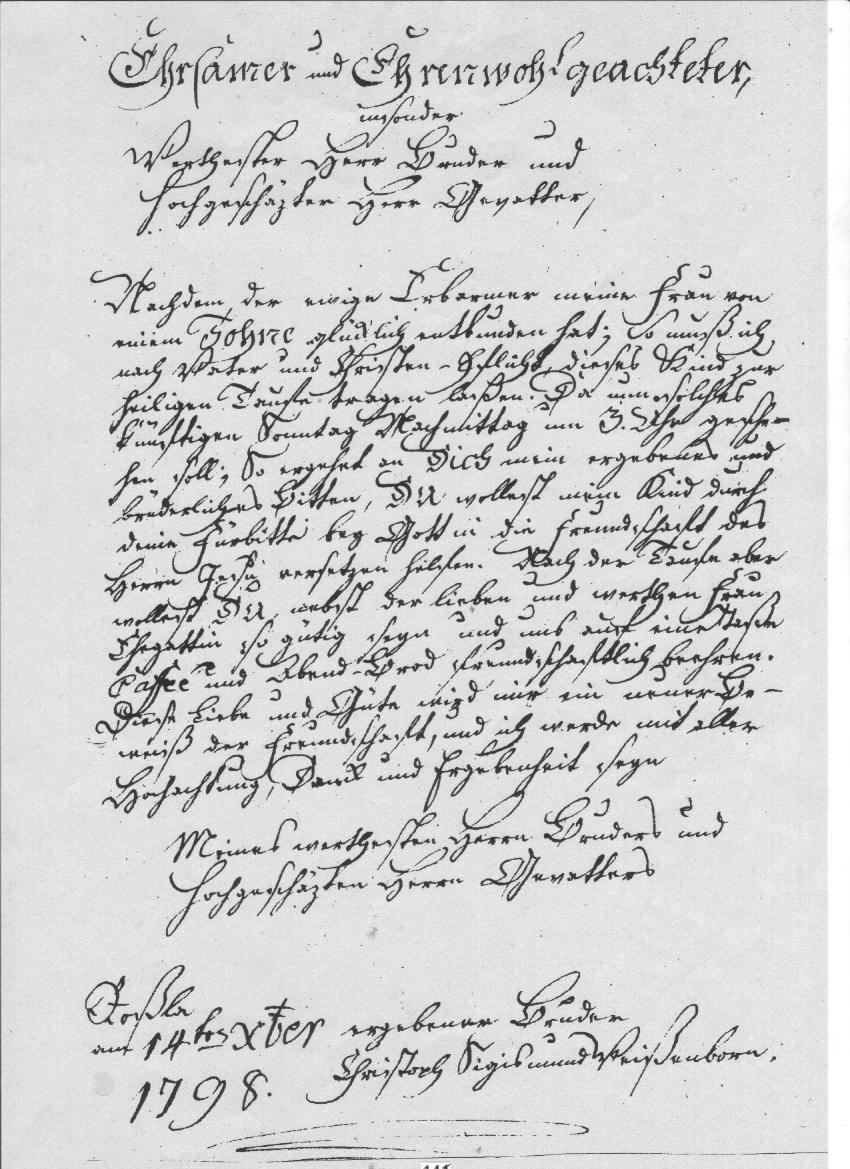 Ehrsamer und Ehrenwohlgeachteter,
insonder
Werthester Herr Bruder und
Hochgeschäzter Herr Gevatter,
Nachdem der ewige Erbarmer meine Frau von
einem Sohne glücklich entbunden hat; so muß ich
nach Vater und Christen-Pflicht dieses Kind zur
heiligen Taufe tragen laßen. Da nun solches
künftigen Sonntag Nachmittag um 3. Uhr gesche-
hen soll; So ergehet an Dich mein ergebenes und
brüderliches Bitten, Du wollest mein Kind durch
deine Fürbitte bey Gott in die Freundschaft des
Herrn Jesu versetzen helfen. Nach der Taufe aber
wollest Du nebst der lieben und werthen Frau
Ehegattin so gütig seyn und uns auf eine Taße
Caffee und Abend-Brod freundschaftlich beehren.
Diese Liebe und Güte wird mir ein neuer Be-
weiß der Freundschaft, und ich werde mit aller
Hochachtung, Danck und Ergebenheit seyn
Meines werthesten Herrn Bruders und
Hochgeschäzten Herrn Gevatters
Roßla
am 14ten Xber ergebener Bruder
1798. Christoph Sigismund Weißenborn.